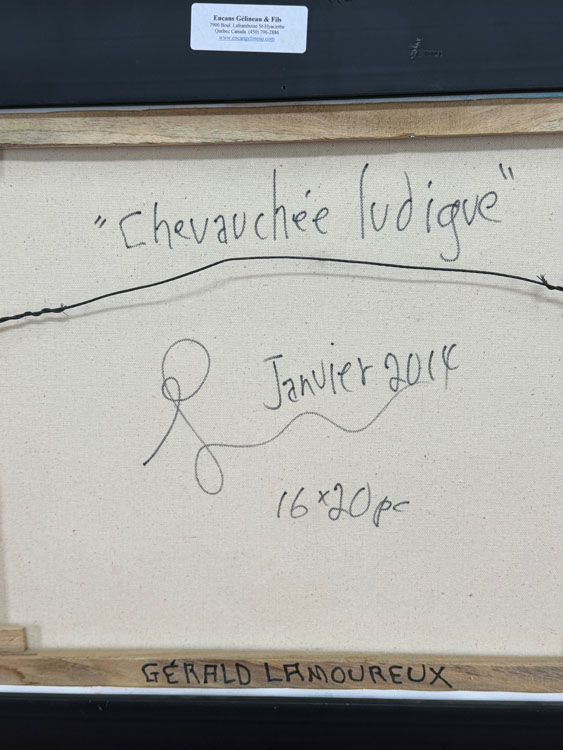 Encans Gélineau & Fils
7900 Boul. Laframboise St-Hyacinthe
Québec Canada (450) 796-2886
www.encangelineau.com
"Chevauchée ludique"
Janvier 2014
16x20 pc
GÉRALD LAMOUREUX